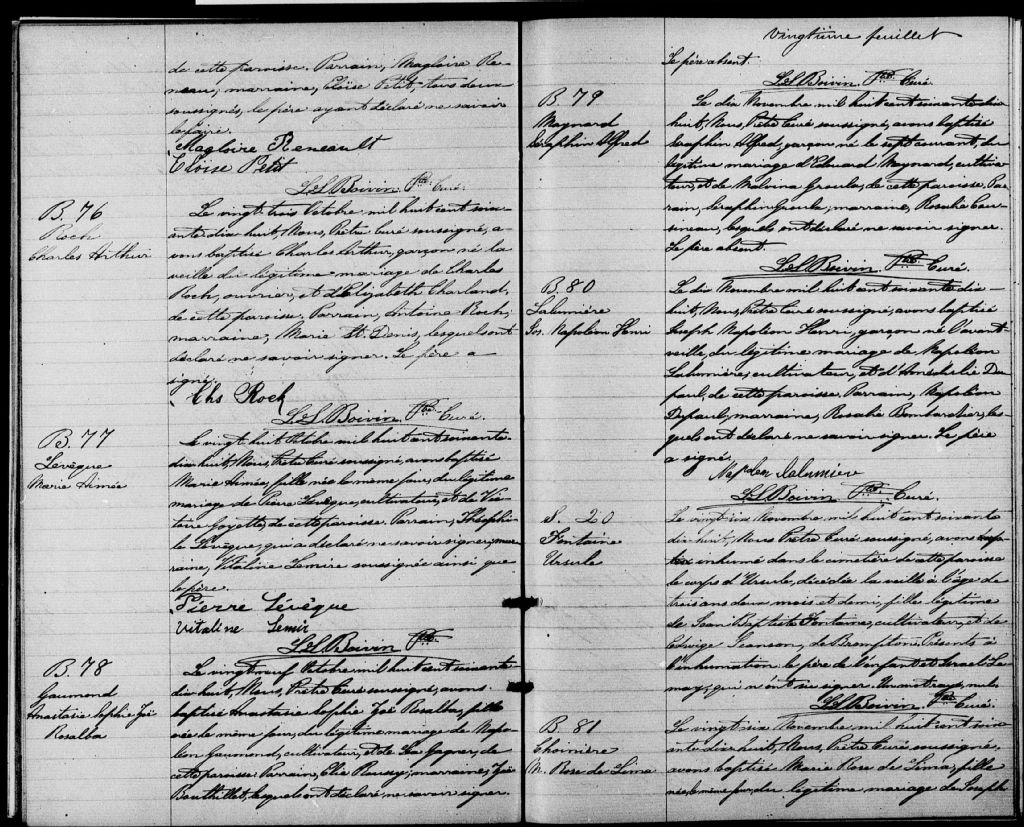 de cette paroisse. Parrain, Magloire Re-
neau; marraine, Eloïse Petit, tous deux
soussignés, le père ayant déclaré ne savoir
le faire.
Magloire Reneault
Eloise Petit
L.S. Boivin Ptre Curé.
B. 76
Roch
Charles Arthur
Le vingt trois Octobre mil huit cent soix-
ante dix huit, Nous, Prêtre Curé soussigné, a-
vons baptisé Charles Arthur, garçon né la
veille du légitime mariage de Charles
Roch, ouvrier, et d'Elizabeth Charland,
de cette paroisse. Parrain, Antoine Roch;
marraine; Marie St. Denis, lesquels ont
déclaré ne savoir signer. Le père a
signé.
Chs Roch
L.S. Boivin Ptre Curé.
B. 77
Levèque
Marie Aimée
Le vingt huit Octobre mil huit cent soixante-
dix huit, Nous, Prêtre Curé soussigné, avons baptisé
Marie Aimée, fille née le même jour, du légitime
mariage de Pierre Levèque, cultivateur, et de Vic-
toire Goyette, de cette paroisse. Parrain, Théophi-
le Levèque, qui a déclaré ne savoir signer; mar-
raine, Vitaline Lemire soussignée ainsi que
le père.
Pierre Lévêque
Vitaline Lemir
L.S. Boivin Ptre
B. 78
Gaumond
Anastasie Sophie Zoé
Rosalba
Le vingt neuf Octobre mil huit cent soixante-
dix huit, Nous, Prêtre Curé soussigné, avons
baptisé Anastasie Sophie Zoé Rosalba, fille
née le même jour, du légitime mariage de Napo-
léon Gaumond, cultivateur, et de Léa Gagner, de
cette paroisse. Parrain, Elie Roussy; marraine, Zoé
Bouthillet, lesquels ont déclaré ne savoir signer.
Vingtième feuillet
Le père absent.
L.S. Boivin Ptre Curé.
B. 79
Maynard
Séraphin Alfred
Le dix Novembre mil huit cent soixante dix
huit, Nous, Prêtre Curé soussigné, avons baptisé
Séraphin Alfred, garçon né le sept courant, du
légitime mariage d'Edouard Maynard, cultiva-
teur, et de Malvina Groulx, de cette paroisse. Par-
rain, Séraphin Groulx; marraine, Rosalie Cour-
lesquels ont déclaré ne savoir signer.
Le père absent.
L.S. Boivin Ptre Curé.
B. 80
Lalumière
Jos. Napoléon Henri
Le dix Novembre mil huit cent soixante dix-
huit, Nous, Prêtre Curé soussigné, avons baptisé
Joseph Napoléon Henri, garçon né l'avant-
veille, du légitime mariage de Napoléon
Lalumière, cultivateur, et d'Amarilis Du-
paul, de cette paroisse. Parrain, Napoléon
Dupaul, marraine, Rosalie Bombardier, les-
quels ont déclaré ne savoir signer. Le père
a signé.
Napoléon lalumiere
L.S. Boivin Ptre Curé.
S. 20
Fontaine
Ursule
Le vingt six Novembre, mil huit cent soixante
dix huit, Nous Prêtre Curé soussigné, avons
inhumé dans le cimetière de cette paroisse
le corps d'Ursule, décédée la veille à l'âge de
trois ans deux mois et demi, fille légitime
de Jean Baptiste Fontaine, cultivateur, et de
Edwige Jeanson, de Brompton. Présents à
l'inhumation le père de l'enfant et Israël Le-
may, qui n'ont su signer. Un mot rayé, nul.
L.S. Boivin Ptre Curé.
B. 81
Choinière
M. Rose de Lima
Le vingt six Novembre, mil huit cent soix-
ante dix huit, Nous, Prêtre Curé soussigné,
avons baptisé Marie Rose de Lima, fille
née le même jour, du légitime mariage de Joseph